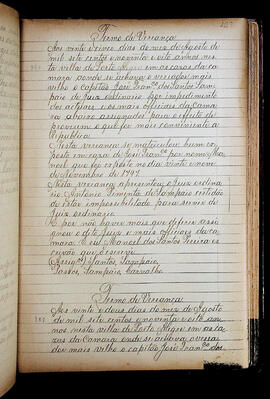 Termo de Vereança
Aos vinte e cinco dias do mez de Agosto
de mil sete centos e noventa e oito annos nes-
ta villa de Porto Alegre em as cazas da ca-
mara donde se achava o vereador mais
velho o capitão José Franco. dos Santos Sam-
paio de juiz ordinario por impedimento
dos actuaes e os mais officiaes da cama-
ra abaixo assignados para o effeito de
proverem o que for mais conveniente a
Republica.
Nesta vereança se matriculou hum ex-
posto em caza de José Franco. por nome
que foi exposto no dia vinte e nove
de Novembro de 1797.
Nesta vereança apresentou o juiz ordina-
rio Antonio Pimenta de Sampaio
de estar impossibilitado para servir de
juiz ordinario.
E por não haver mais que deferir assig-
nou o dito juiz e mais officiaes da ca-
mara. E eu Manoel dos Santos
escrivão que o escrevi
(Assigos.) Santos, Sampaio,
Passos, Sampaio, Carvalho.
Termo de Vereança
Aos vinte e dous dias do mez de Agosto
de mil sete centos e noventa e oito an-
nos nesta villa de Porto Alegre em as ca-
zas da Camara onde se achava o verea-
dor mais velho o capitão José Franco. dos